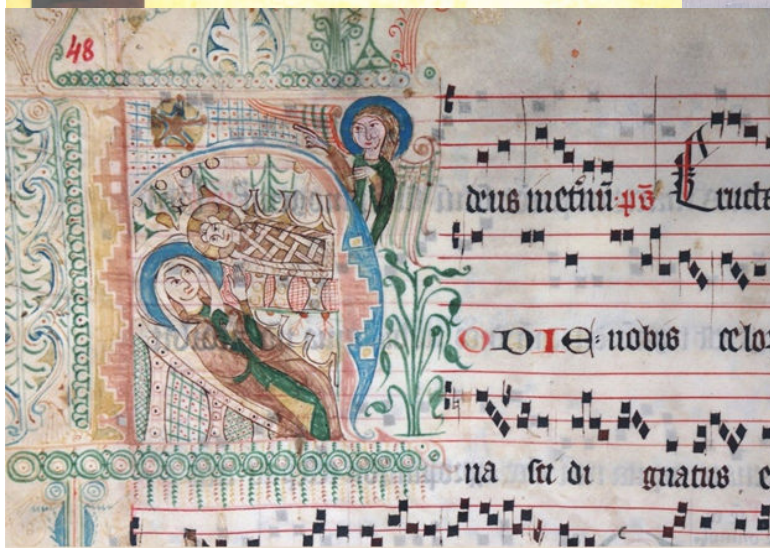 48
deus ineternū ps̄ Eructa
HODIE nobis celor
na sci di gnatus e